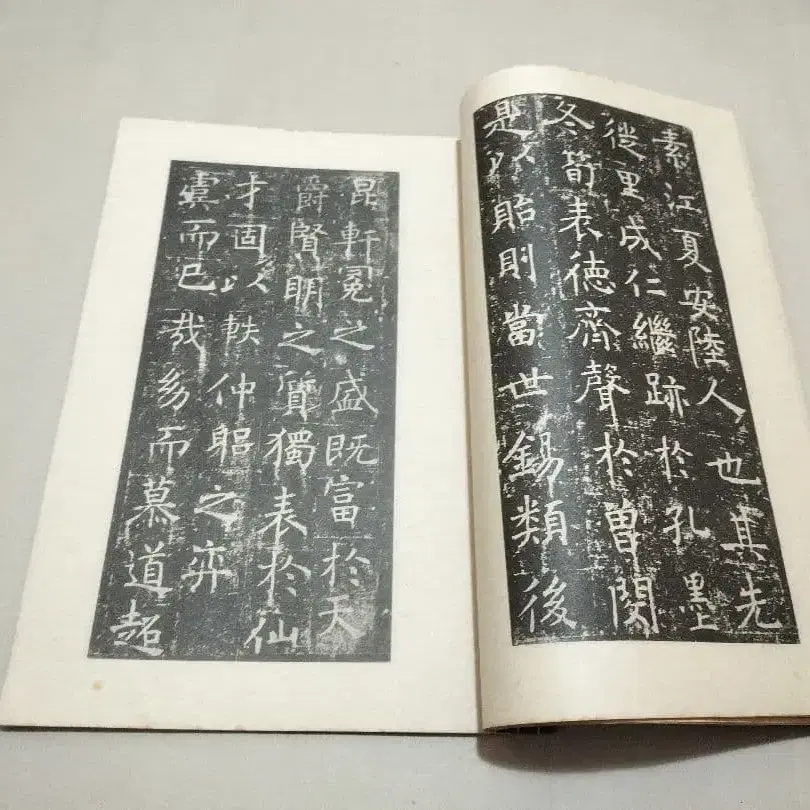 素江夏安陸人也其先
徙里成仁繼跡於孔墨
冬筍表徳齊聲於曾閔
是以貽則當世錫類後
昆軒冕之盛既富於天
爵賢明之質獨表於仙
才固以軼仲躳之弈
虞而已哉幼而慕道超